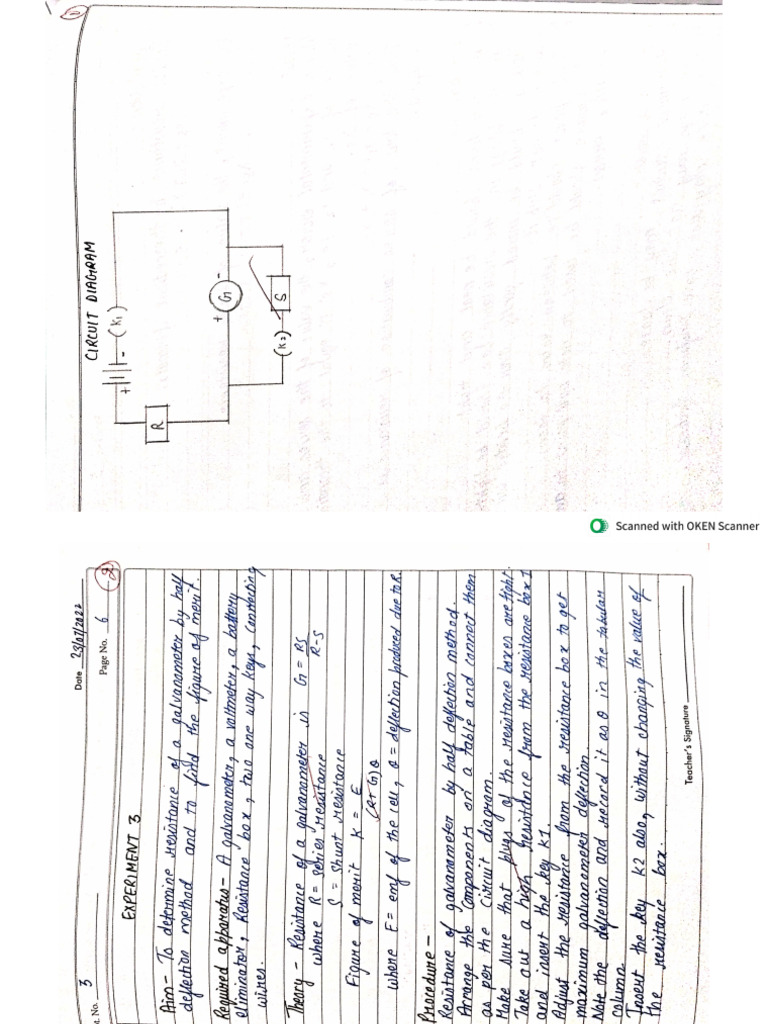 CIRCUIT DIAGRAM
+ - (K1)
R
+ G -
(K2) S
Scanned with OKEN Scanner
Date 23/07/2022
No. 3
Page No. 6
2
EXPERIMENT 3
Aim - To determine resistance of a galvanometer by half
deflection method and to find the figure of merit.
Required apparatus - A galvanometer, a voltmeter, a battery
eliminator, Resistance box, two one way keys, connecting
wires.
Theory - Resistance of a galvanometer is G = RS
R-S
where R = series resistance
S = Shunt resistance
Figure of merit K = E
(R+G)θ
where E = emf of the cell, θ = deflection produced due to R.
Procedure -
Resistance of galvanometer by half deflection method.
Arrange the components on a table and connect them
as per the circuit diagram.
Make sure that plugs of the resistance boxes are tight.
Take out a high resistance from the resistance box 1
and insert the key K1.
Adjust the resistance from the resistance box to get
maximum galvanometer deflection.
Note the deflection and record it as θ in the tabular
column.
Insert the key K2 also, without changing the value of
the resistance box.
Teacher's Signature